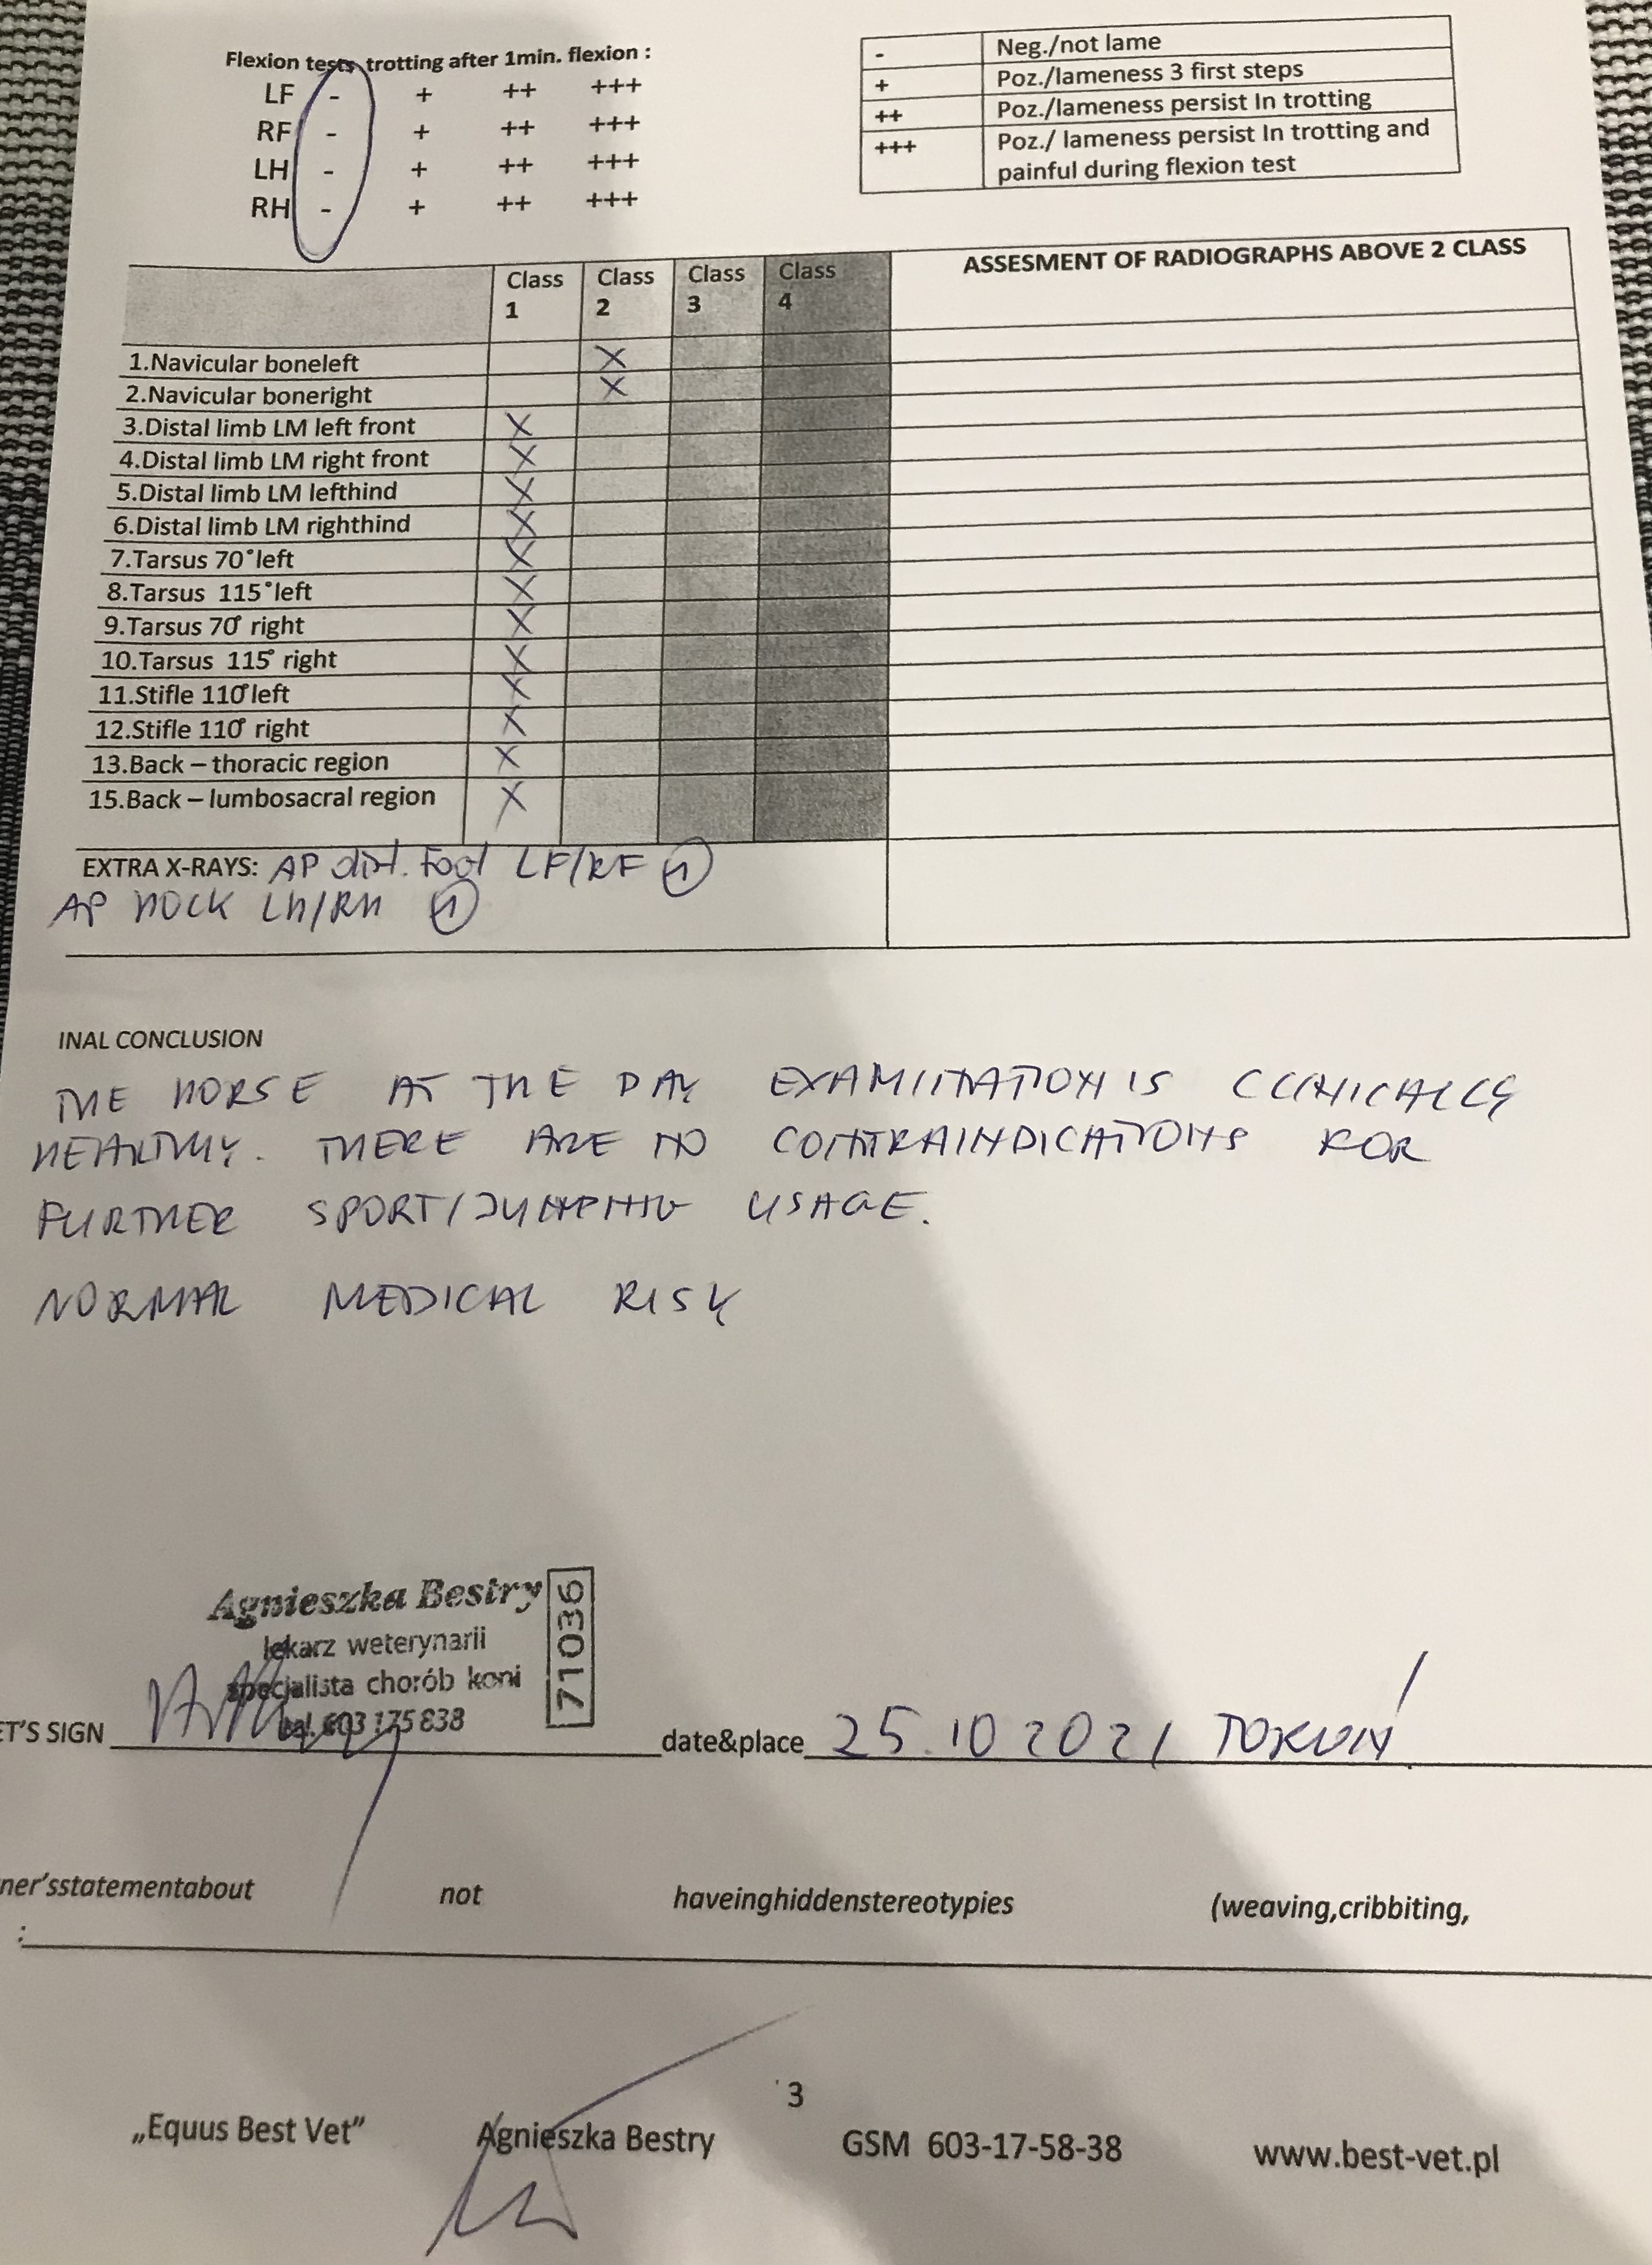 Flexion tests trotting after 1min. flexion :
LF - + ++ +++
RF - + ++ +++
LH - + ++ +++
RH - + ++ +++
- Neg./not lame
+ Poz./lameness 3 first steps
++ Poz./lameness persist In trotting
+++ Poz./ lameness persist In trotting and
painful during flexion test
Class 1 Class 2 Class 3 Class 4 ASSESMENT OF RADIOGRAPHS ABOVE 2 CLASS
1.Navicular boneleft X
2.Navicular boneright X
3.Distal limb LM left front X
4.Distal limb LM right front X
5.Distal limb LM lefthind X
6.Distal limb LM righthind X
7.Tarsus 70°left X
8.Tarsus 115°left X
9.Tarsus 70° right X
10.Tarsus 115° right X
11.Stifle 110°left X
12.Stifle 110° right X
13.Back – thoracic region X
15.Back – lumbosacral region X
EXTRA X-RAYS: AP dist. Foot LF/RF 1
AP HOCK LH/RH 1
INAL CONCLUSION
THE HORSE AT THE DAY EXAMINATION IS CLINICALLY
HEALTHY. THERE ARE NO CONTRAINDICATIONS FOR
FURTHER SPORT/JUMPING USAGE.
NORMAL MEDICAL RISK
Agnieszka Bestry
lekarz weterynarii
specjalista chorób koni
tel. 603 175 838
71036
ET'S SIGN date&place 25.10 2021 TORUŃ
ner'sstatementabout not haveinghiddenstereotypies (weaving,cribbiting,
:
3
„Equus Best Vet” Agnieszka Bestry GSM 603-17-58-38 www.best-vet.pl